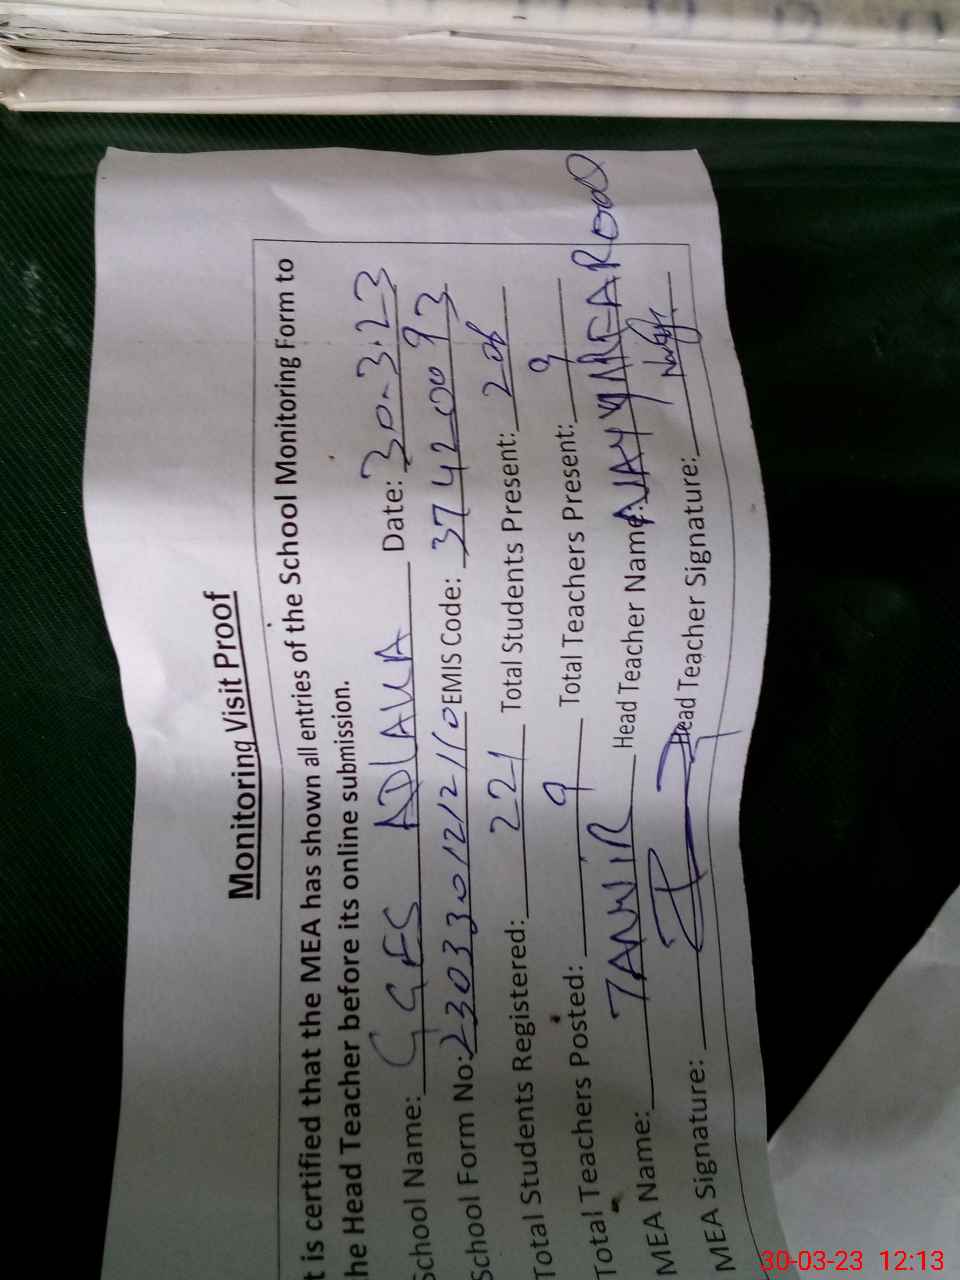 Monitoring Visit Proof
t is certified that the MEA has shown all entries of the School Monitoring Form to
he Head Teacher before its online submission.
School Name: GGES ADLAKA Date: 30-3-23
School Form No: 230330121210 EMIS Code: 37420093
Total Students Registered: 221 Total Students Present: 208
Total Teachers Posted: 9 Total Teachers Present: 9
MEA Name: TANVIR Head Teacher Name:
MEA Signature: Head Teacher Signature:
30-03-23 12:13